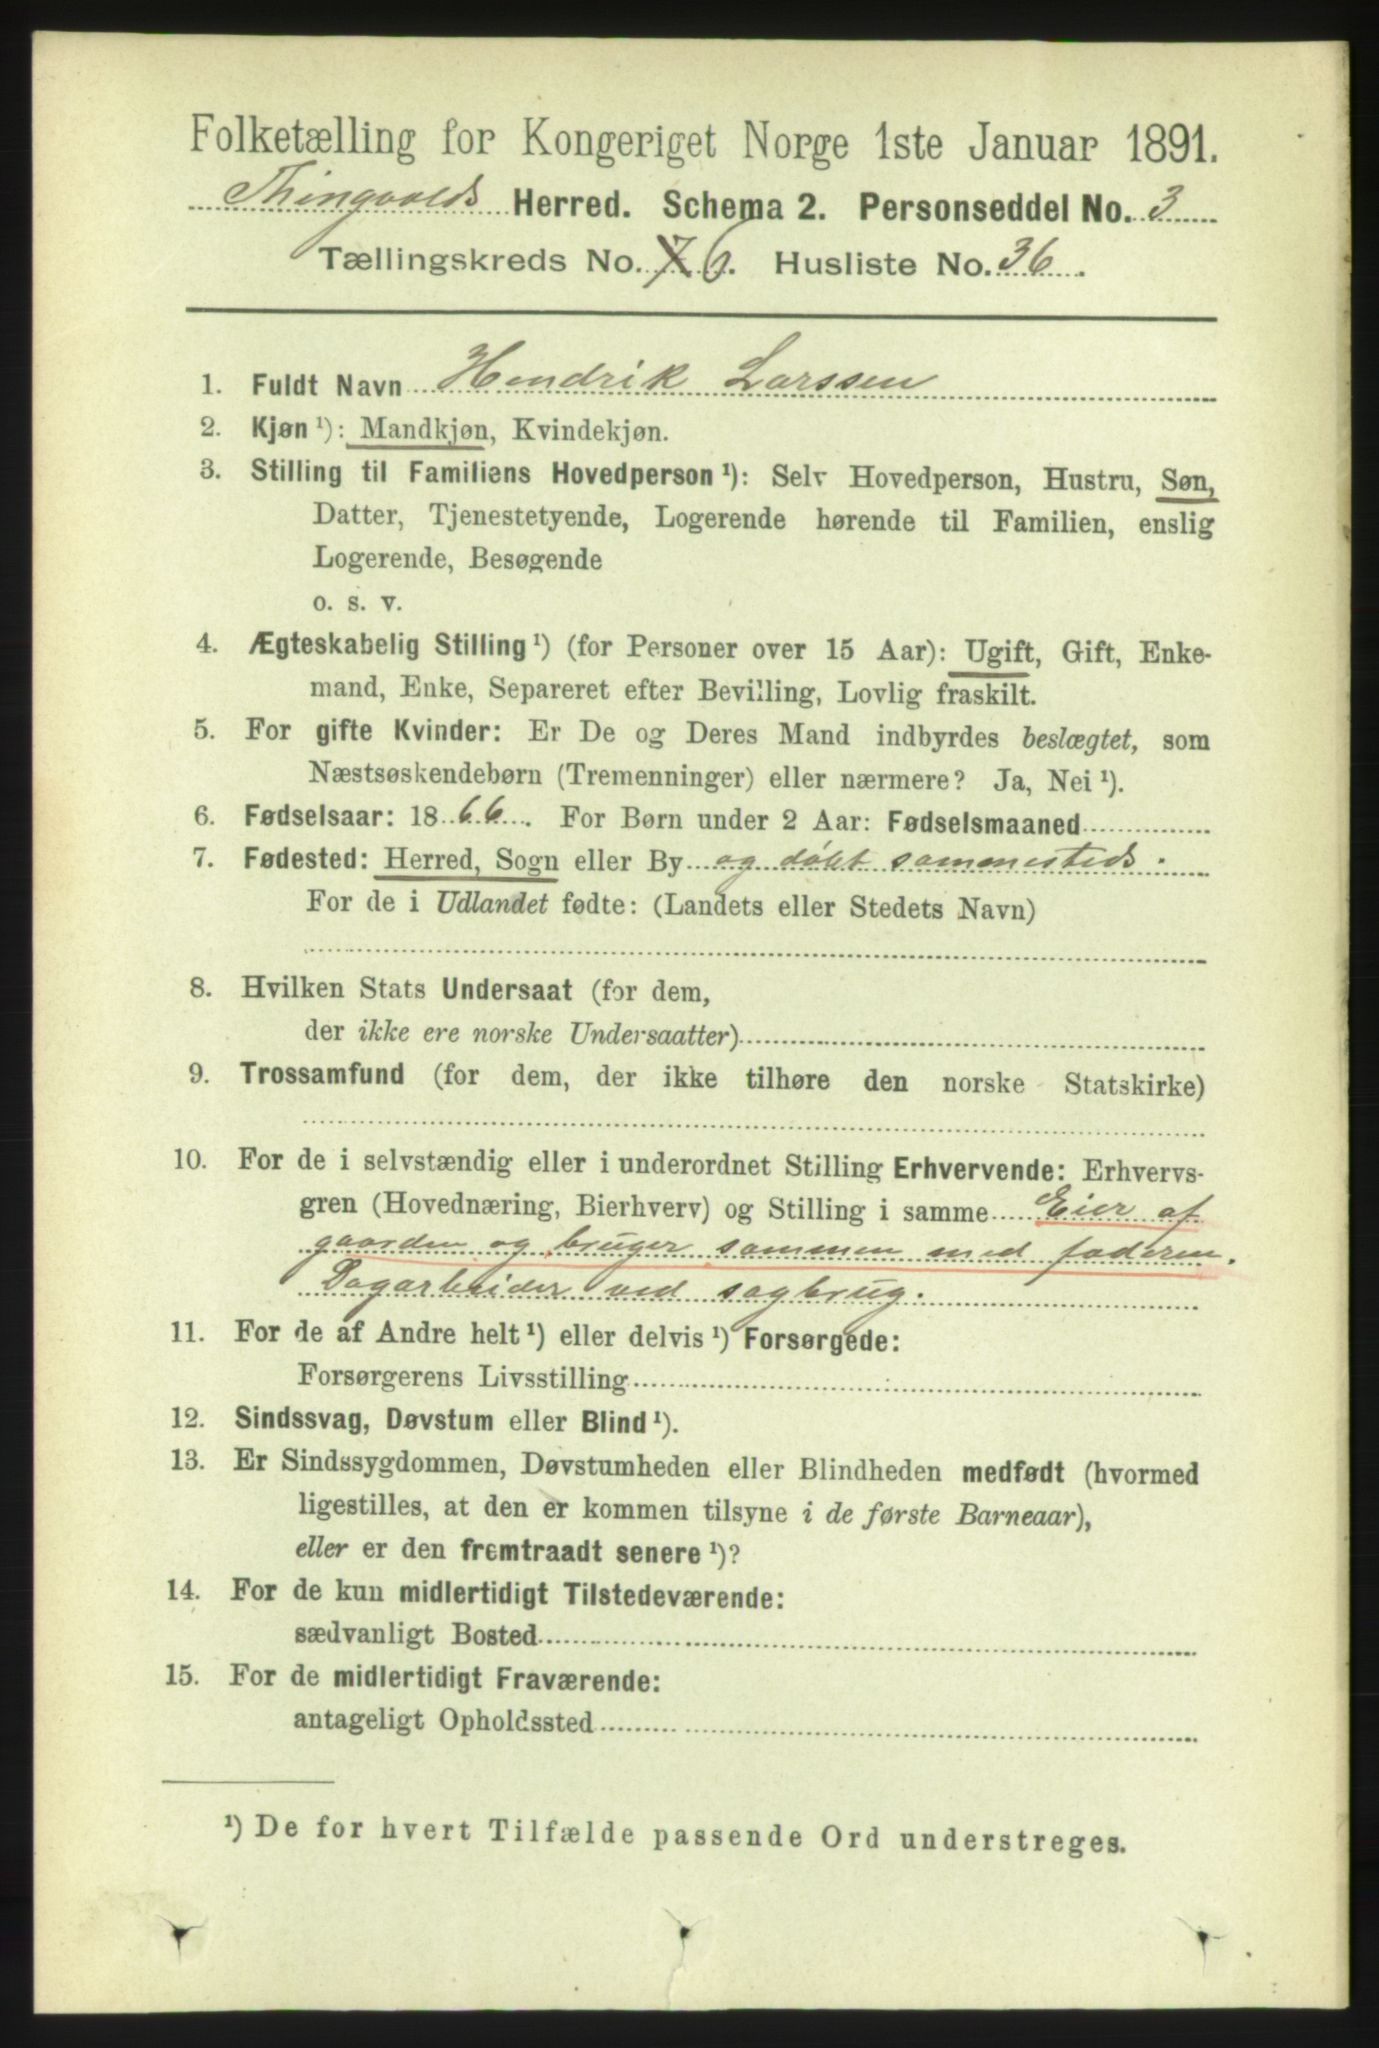 Folketælling for Kongeriget Norge 1ste Januar 1891.
Thingvolds Herred. Schema 2. Personseddel No. 3
Tællingskreds No. 7 6. Husliste No. 36.
1. Fuldt Navn Hendrik Larssen
2. Kjøn ¹): Mandkjøn, Kvindekjøn.
3. Stilling til Familiens Hovedperson ¹): Selv Hovedperson, Hustru, Søn,
Datter, Tjenestetyende, Logerende hørende til Familien, enslig
Logerende, Besøgende
o. s. v.
4. Ægteskabelig Stilling ¹) (for Personer over 15 Aar): Ugift, Gift, Enke-
mand, Enke, Separeret efter Bevilling, Lovlig fraskilt.
5. For gifte Kvinder: Er De og Deres Mand indbyrdes beslægtet, som
Næstsøskendebørn (Tremenninger) eller nærmere? Ja, Nei ¹).
6. Fødselsaar: 1866. For Børn under 2 Aar: Fødselsmaaned
7. Fødested: Herred, Sogn eller By og døbt sammesteds.
For de i Udlandet fødte: (Landets eller Stedets Navn)
8. Hvilken Stats Undersaat (for dem,
der ikke ere norske Undersaatter)
9. Trossamfund (for dem, der ikke tilhøre den norske Statskirke)
10. For de i selvstændig eller i underordnet Stilling Erhvervende: Erhvervs-
gren (Hovednæring, Bierhverv) og Stilling i samme Eier af
gaarden og bruger sammen med faderen.
Dagarbeider ved sagbrug.
11. For de af Andre helt ¹) eller delvis ¹) Forsørgede:
Forsørgerens Livsstilling
12. Sindssvag, Døvstum eller Blind ¹).
13. Er Sindssygdommen, Døvstumheden eller Blindheden medfødt (hvormed
ligestilles, at den er kommen tilsyne i de første Barneaar),
eller er den fremtraadt senere ¹)?
14. For de kun midlertidigt Tilstedeværende:
sædvanligt Bosted
15. For de midlertidigt Fraværende:
antageligt Opholdssted
¹) De for hvert Tilfælde passende Ord understreges.